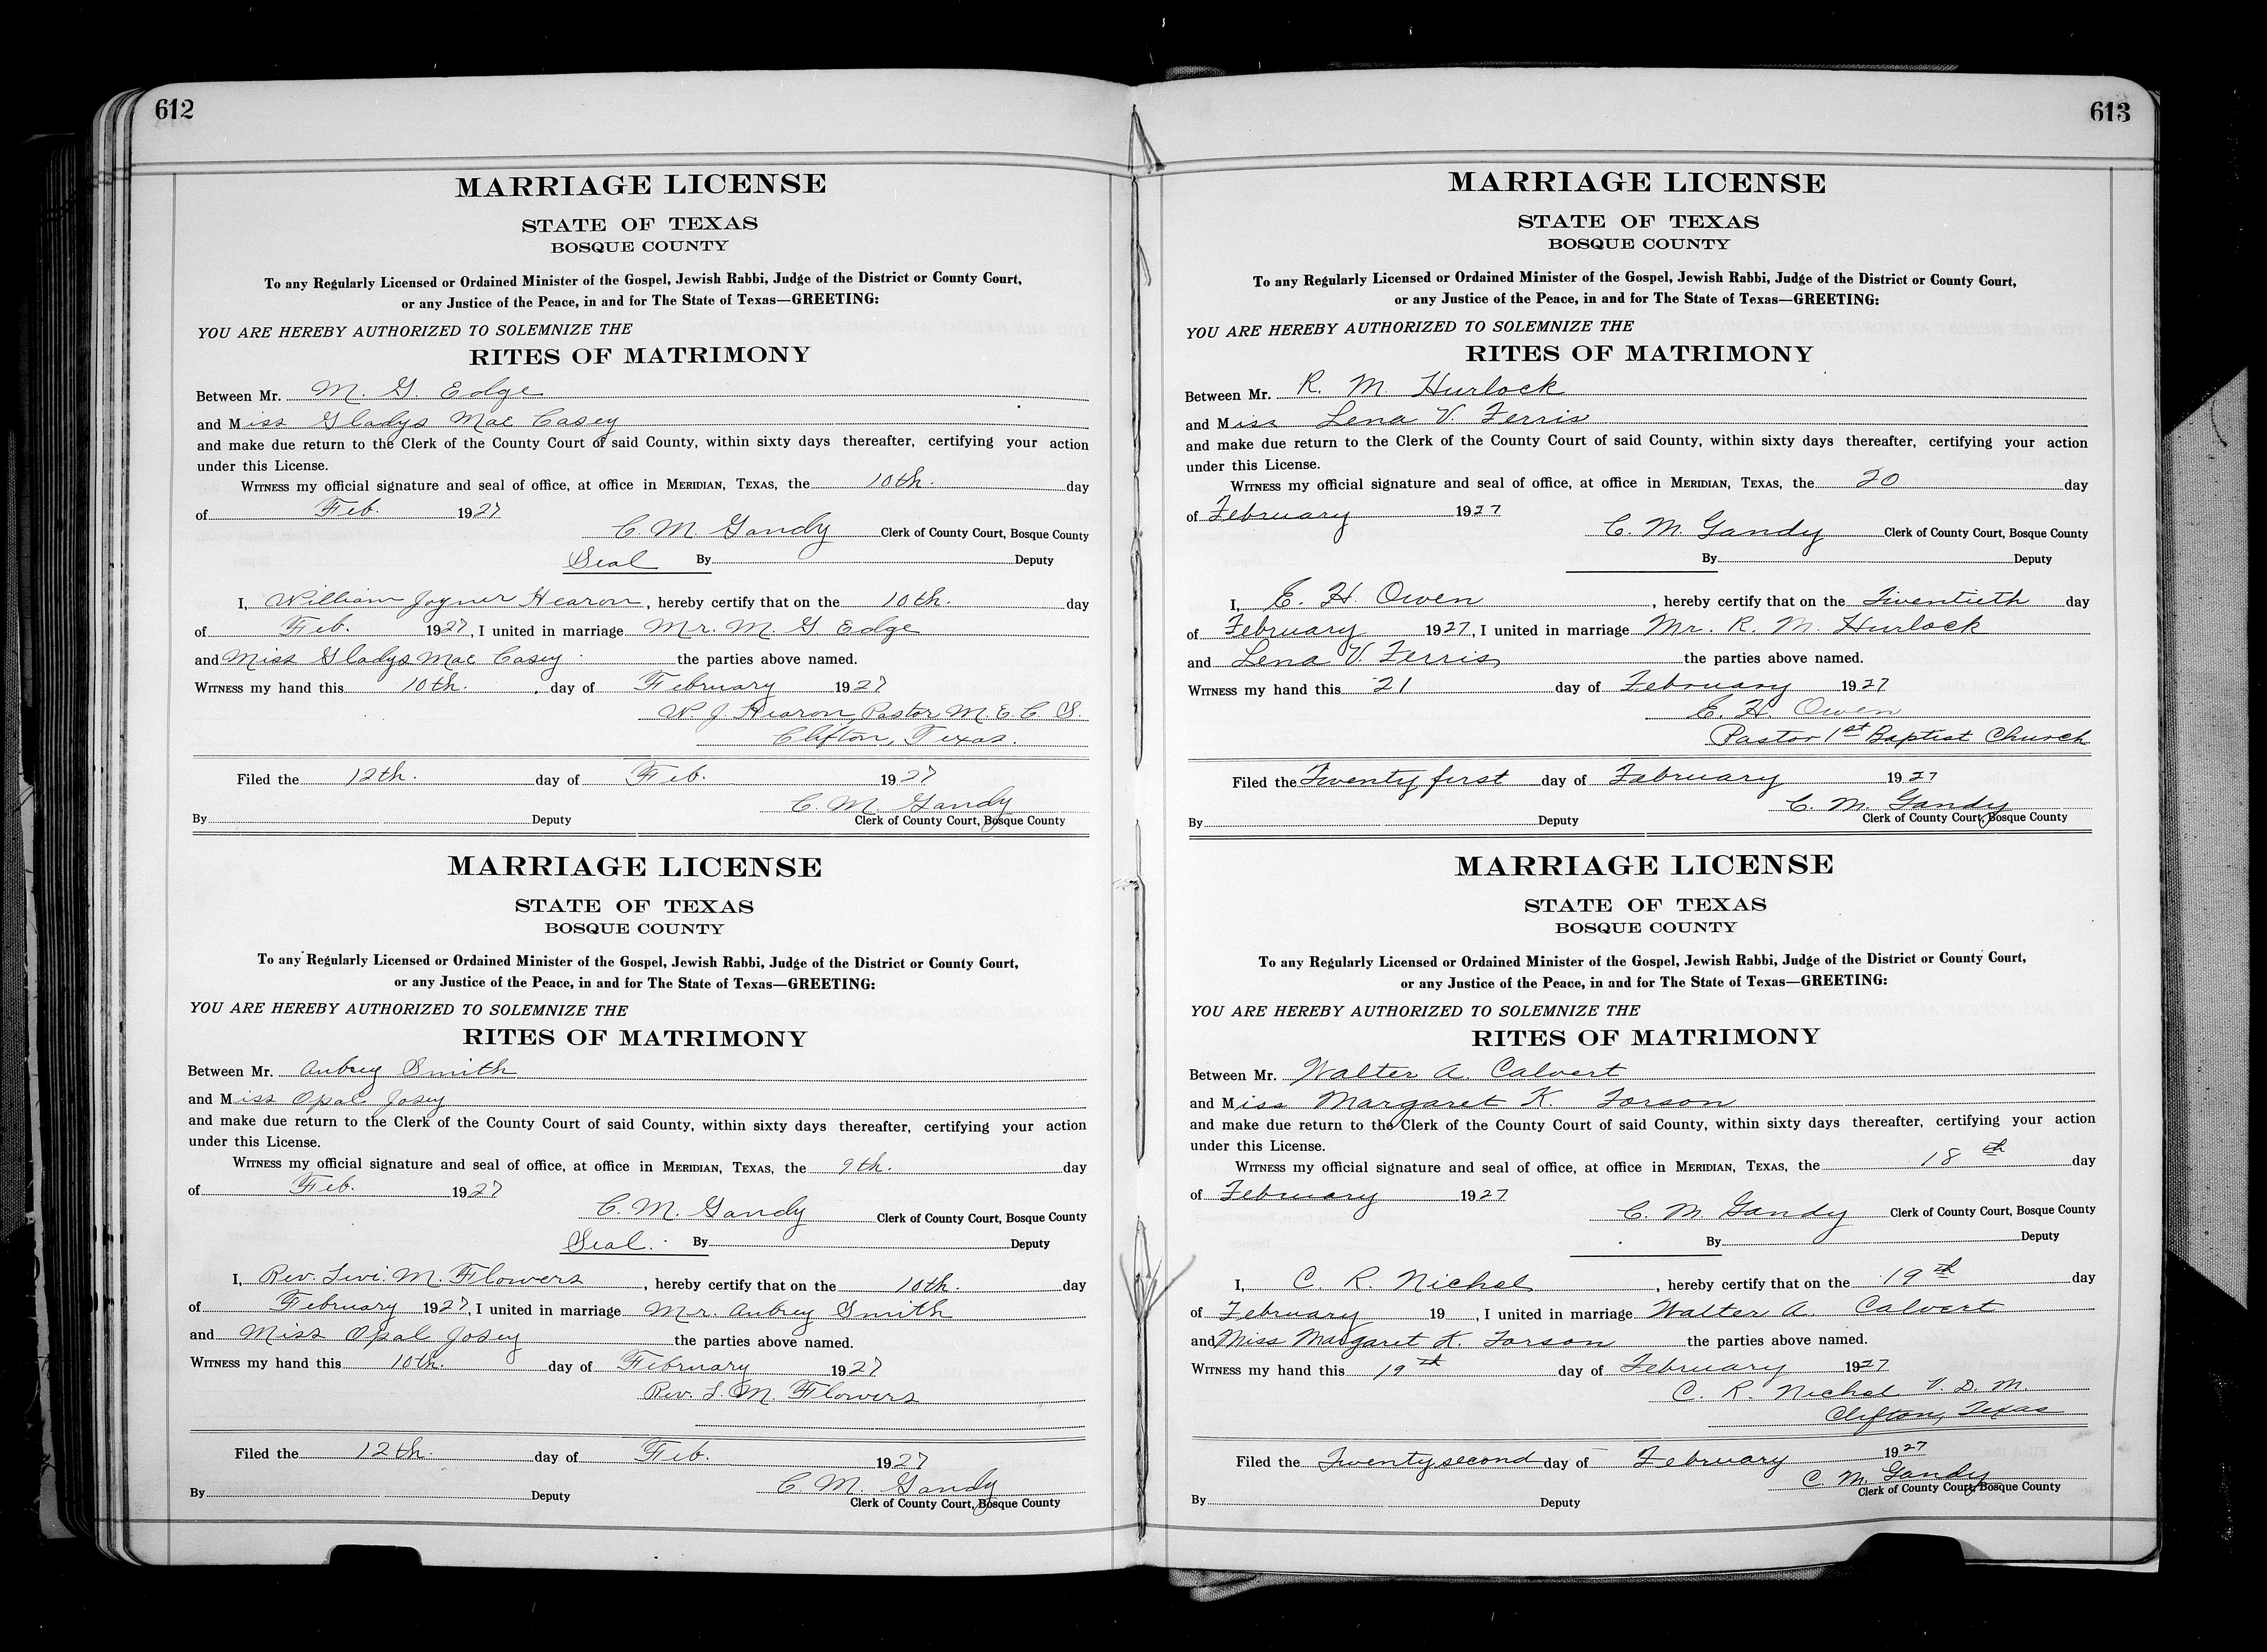 612
MARRIAGE LICENSE
STATE OF TEXAS
BOSQUE COUNTY
To any Regularly Licensed or Ordained Minister of the Gospel, Jewish Rabbi, Judge of the District or County Court,
or any Justice of the Peace, in and for The State of Texas—GREETING:
YOU ARE HEREBY AUTHORIZED TO SOLEMNIZE THE
RITES OF MATRIMONY
Between Mr. M. G. Edge
and Miss Gladys Mae Casey
and make due return to the Clerk of the County Court of said County, within sixty days thereafter, certifying your action
under this License.
WITNESS my official signature and seal of office, at office in MERIDIAN, TEXAS, the 10th. day
of Feb. 1927
C. M. Gandy Clerk of County Court, Bosque County
Seal By Deputy
I, William Joyner Hearon, hereby certify that on the 10th. day
of Feb. 1927, I united in marriage Mr. M. G Edge
and Miss Gladys Mae Casey the parties above named.
WITNESS my hand this 10th. day of February 1927
W. J. Hearon, Pastor M. E. C. S.
Clifton, Texas.
Filed the 12th. day of Feb. 1927
C. M. Gandy
By Deputy Clerk of County Court, Bosque County
MARRIAGE LICENSE
STATE OF TEXAS
BOSQUE COUNTY
To any Regularly Licensed or Ordained Minister of the Gospel, Jewish Rabbi, Judge of the District or County Court,
or any Justice of the Peace, in and for The State of Texas—GREETING:
YOU ARE HEREBY AUTHORIZED TO SOLEMNIZE THE
RITES OF MATRIMONY
Between Mr. Aubrey Smith
and Miss Opal Josey
and make due return to the Clerk of the County Court of said County, within sixty days thereafter, certifying your action
under this License.
WITNESS my official signature and seal of office, at office in MERIDIAN, TEXAS, the 9th. day
of Feb. 1927
C. M. Gandy Clerk of County Court, Bosque County
Seal. By Deputy
I, Rev. Levi. M. Flowers, hereby certify that on the 10th. day
of February 1927, I united in marriage Mr. Aubrey Smith
and Miss Opal Josey the parties above named.
WITNESS my hand this 10th. day of February 1927
Rev. L. M. Flowers
Filed the 12th. day of Feb. 1927
C. M. Gandy
By Deputy Clerk of County Court, Bosque County
613
MARRIAGE LICENSE
STATE OF TEXAS
BOSQUE COUNTY
To any Regularly Licensed or Ordained Minister of the Gospel, Jewish Rabbi, Judge of the District or County Court,
or any Justice of the Peace, in and for The State of Texas—GREETING:
YOU ARE HEREBY AUTHORIZED TO SOLEMNIZE THE
RITES OF MATRIMONY
Between Mr. R. M. Hurlock
and Miss Lena V. Ferris
and make due return to the Clerk of the County Court of said County, within sixty days thereafter, certifying your action
under this License.
WITNESS my official signature and seal of office, at office in MERIDIAN, TEXAS, the 20 day
of February 1927
C. M. Gandy Clerk of County Court, Bosque County
By Deputy
I, E. H. Owen, hereby certify that on the Twentieth day
of February 1927, I united in marriage Mr. R. M. Hurlock
and Lena V. Ferris the parties above named.
WITNESS my hand this 21 day of February 1927
E. H. Owen
Pastor 1st Baptist Church
Filed the Twenty first day of February 1927
C. M. Gandy
By Deputy Clerk of County Court, Bosque County
MARRIAGE LICENSE
STATE OF TEXAS
BOSQUE COUNTY
To any Regularly Licensed or Ordained Minister of the Gospel, Jewish Rabbi, Judge of the District or County Court,
or any Justice of the Peace, in and for The State of Texas—GREETING:
YOU ARE HEREBY AUTHORIZED TO SOLEMNIZE THE
RITES OF MATRIMONY
Between Mr. Walter A. Calvert
and Miss Margaret K. Forson
and make due return to the Clerk of the County Court of said County, within sixty days thereafter, certifying your action
under this License.
WITNESS my official signature and seal of office, at office in MERIDIAN, TEXAS, the 18th day
of February 1927
C. M. Gandy Clerk of County Court, Bosque County
By Deputy
I, C. R. Nichol, hereby certify that on the 19th day
of February 19 , I united in marriage Walter A. Calvert
and Miss Margaret K. Forson the parties above named.
WITNESS my hand this 19th day of February 1927
C. R. Nichol V. D. M.
Clifton, Texas
Filed the Twenty second day of February 1927
C. M. Gandy
By Deputy Clerk of County Court, Bosque County